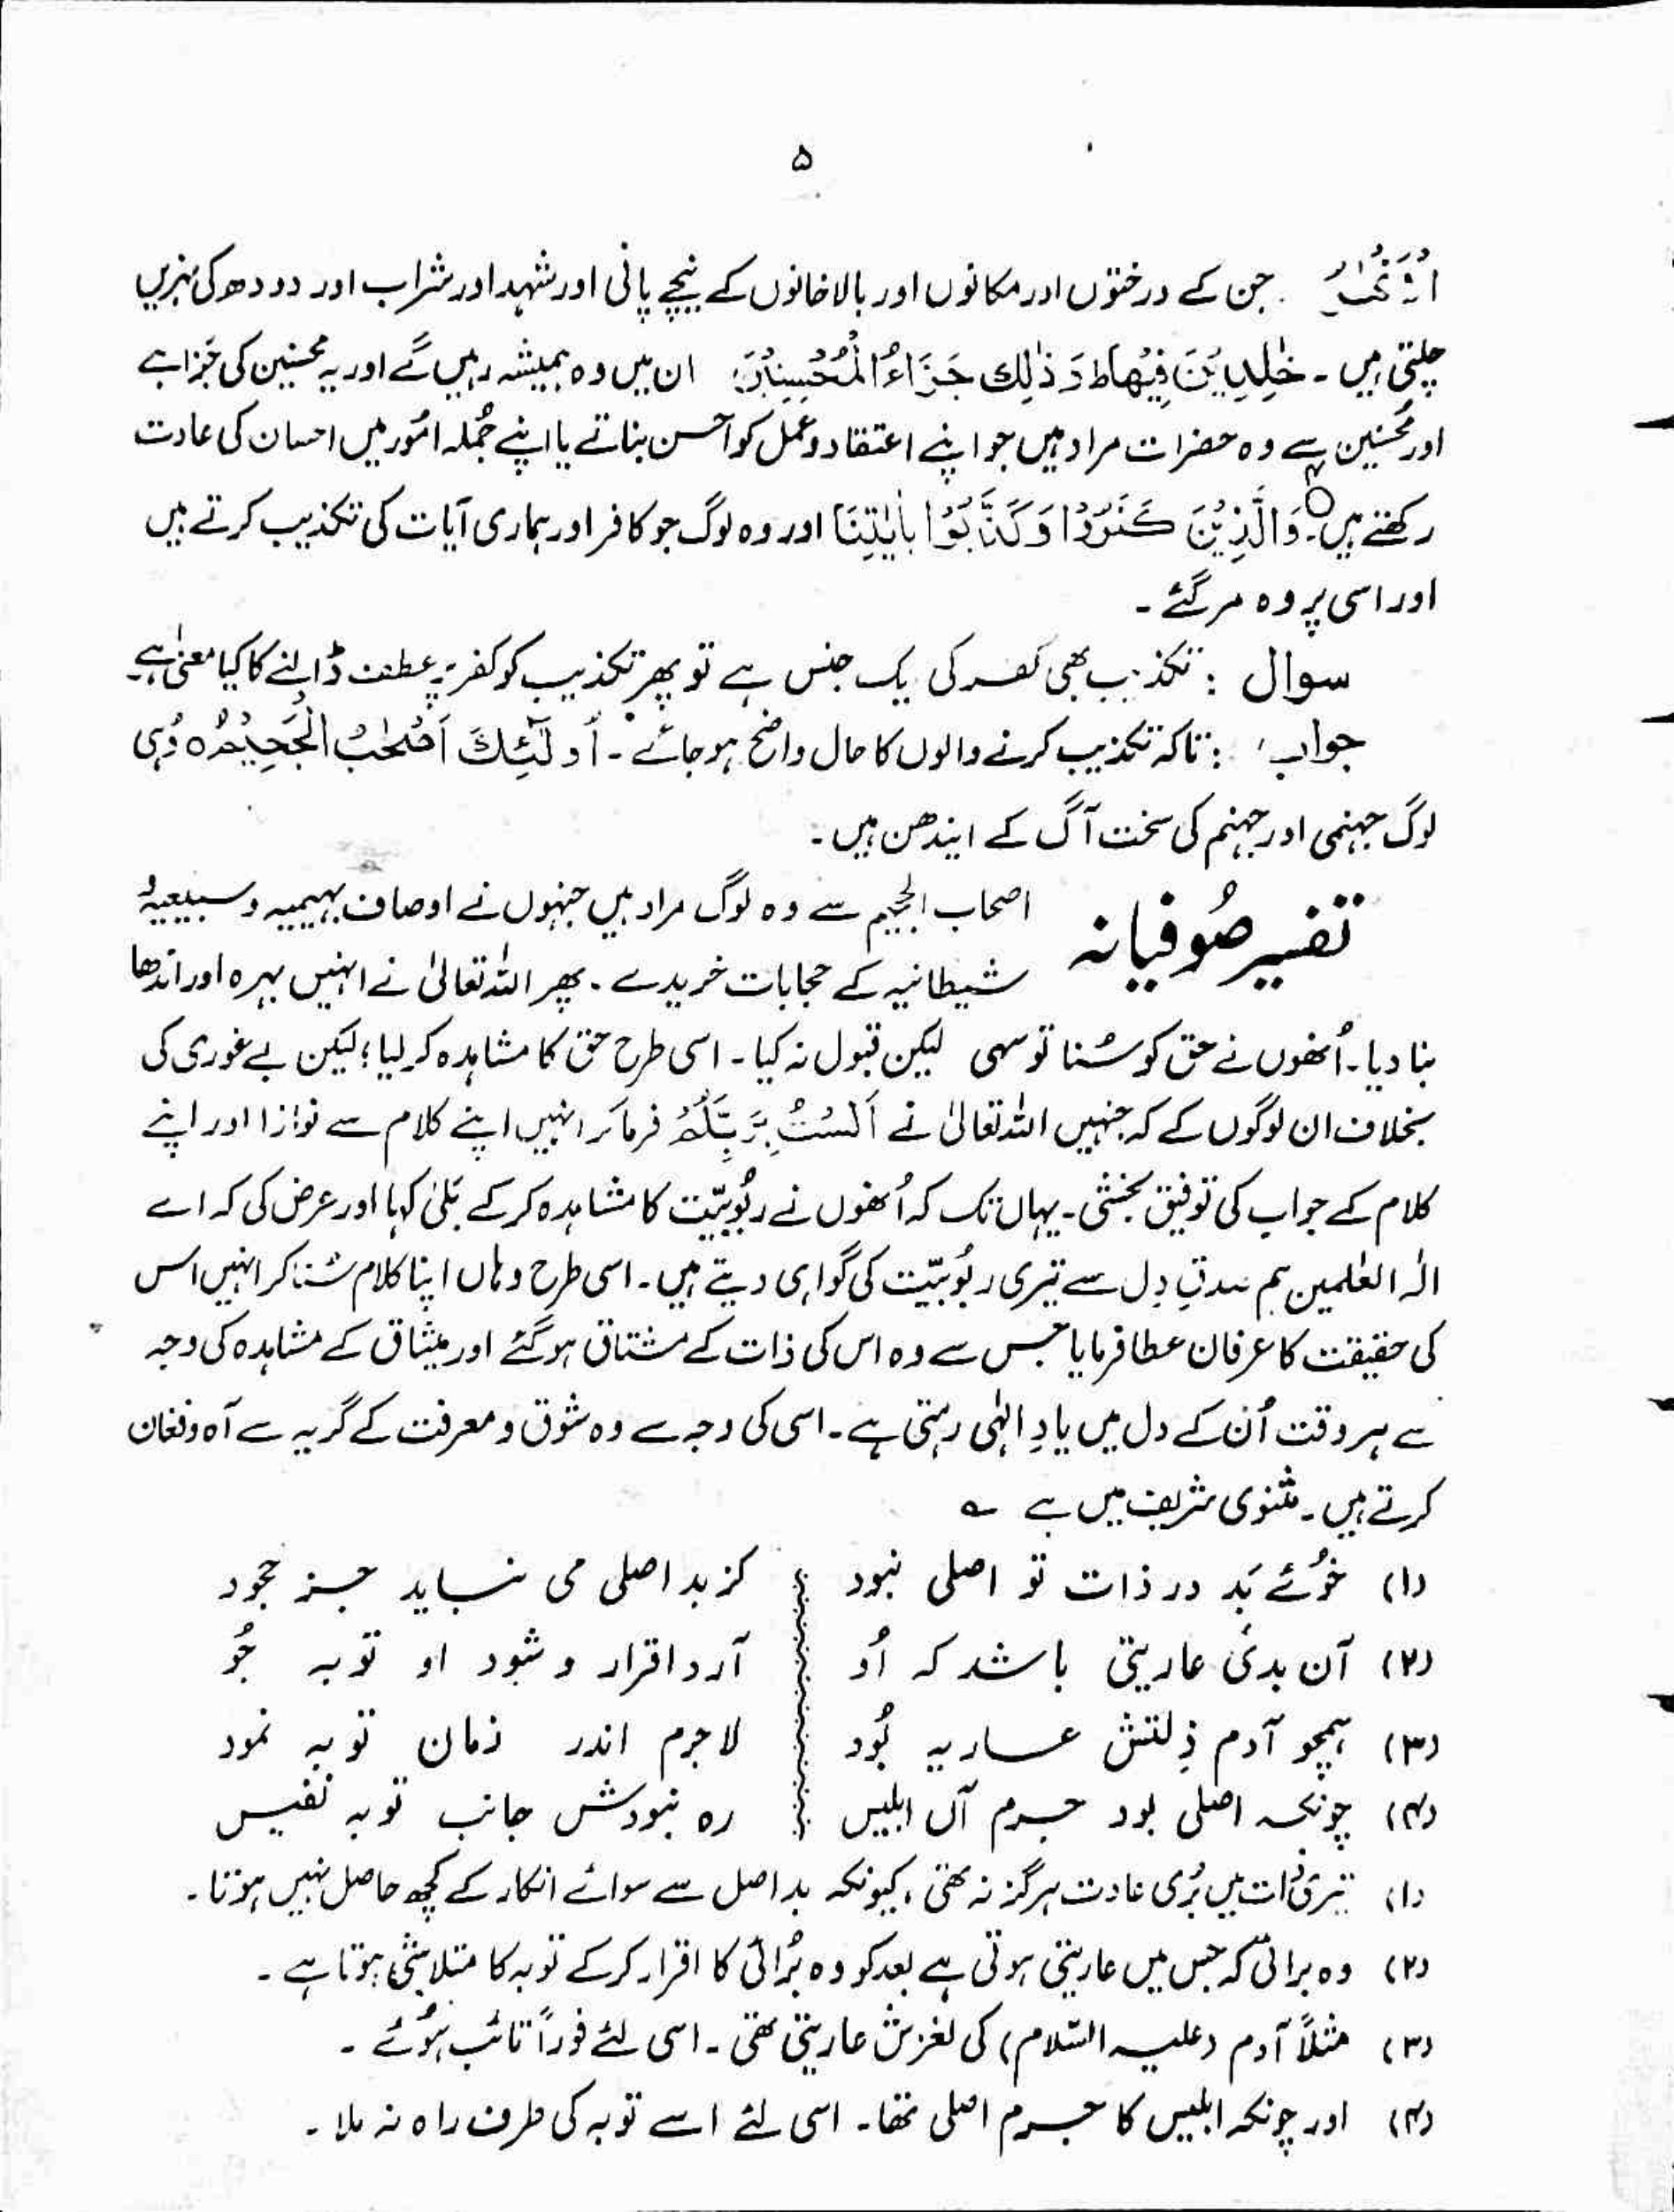 ۵
الْاَنْهٰرُ جن کے درختوں اور مکانوں اور بالاخانوں کے نیچے پانی اور شہد اور شراب اور دودھ کی نہریں
چلتی ہیں ۔ خٰلِدِيْنَ فِيْهَا ط وَ ذٰلِكَ جَزَاءُ الْمُحْسِنِيْنَ ان میں وہ ہمیشہ رہیں گے اور یہ محسنین کی جزا ہے
اور مُحسنین سے وہ حضرات مراد ہیں جو اپنے اعتقاد و عمل کو احسن بناتے یا اپنے جُملہ امُور میں احسان کی عادت
رکھتے ہیں ۔ وَالَّذِيْنَ كَفَرُوْا وَكَذَّبُوْا بِاٰيٰتِنَا اور وہ لوگ جو کافر اور ہماری آیات کی تکذیب کرتے ہیں
اور اسی پر وہ مر گئے ۔
سوال : تکذیب بھی کفر کی یک جنس ہے تو پھر تکذیب کو کفر پر عطف ڈالنے کا کیا معنیٰ ہے
جواب : تاکہ تکذیب کرنے والوں کا حال واضح ہوجائے ۔ اُولٰٓئِكَ اَصْحٰبُ الْجَحِيْمِ ہ وُہی
لوگ جہنمی اور جہنم کی سخت آگ کے ایندھن ہیں ۔
تفسیر صُوفیانہ
اصحاب الجحیم سے وہ لوگ مراد ہیں جنہوں نے اوصاف بہیمیہ و سبیعیہ و
شیطانیہ کے حجابات خریدے ۔ پھر اللہ تعالیٰ نے انہیں بہرہ اور اندھا
بنا دیا ۔ اُنھوں نے حق کو سُنا تو سہی لیکن قبول نہ کیا ۔ اسی طرح حق کا مشاہدہ کر لیا ؛ لیکن بے غوری کی
بخلاف ان لوگوں کے کہ جنہیں اللہ تعالیٰ نے اَلَسْتُ بِرَبِّكُمْ فرما کر انہیں اپنے کلام سے نوازا اور اپنے
کلام کے جواب کی توفیق بخشی ۔ یہاں تک کہ اُنھوں نے ربُوبیّت کا مشاہدہ کر کے بَلیٰ کہا اور عرض کی کہ اے
الٰہ العٰلمین ہم صدقِ دِل سے تیری ربُوبیّت کی گواہی دیتے ہیں ۔ اسی طرح وہاں اپنا کلام سُنا کر انہیں اس
کی حقیقت کا عرفان عطا فرمایا جس سے وہ اس کی ذات کے مشتاق ہو گئے اور میثاق کے مشاہدہ کی وجہ
سے ہر وقت اُن کے دل میں یادِ الہٰی رہتی ہے ۔ اسی کی وجہ سے وہ شوق و معرفت کے گریہ سے آہ و فغان
کرتے ہیں ۔ مثنوی شریف میں ہے ؎
(۱) خوُئے بَد در ذات تو اصلی نبود کز بد اصلی می نیاید جز جحود
(۲) آن بدئ عاریتی باشد کہ اُو آرد اقرار و شود او توبہ جُو
(۳) ہمچو آدم ذِلتش عاریہ بُود لاجرم اندر زمان توبہ نمود
(۴) چونکہ اصلی بود جرم آں ابلیس رہ نبودش جانب توبہ نفیس
(۱) تیری ذات میں بُری عادت ہرگز نہ تھی ، کیونکہ بد اصل سے سوائے انکار کے کچھ حاصل نہیں ہوتا ۔
(۲) وہ برائی کہ جس میں عاریتی ہوتی ہے بعد کو وہ بُرائی کا اقرار کر کے توبہ کا متلاشی ہوتا ہے ۔
(۳) مثلاً آدم (علیہ السّلام) کی لغزش عاریتی تھی ۔ اسی لئے فوراً تائب ہوُئے ۔
(۴) اور چونکہ ابلیس کا جرم اصلی تھا ۔ اسی لئے اسے توبہ کی طرف راہ نہ ملا ۔